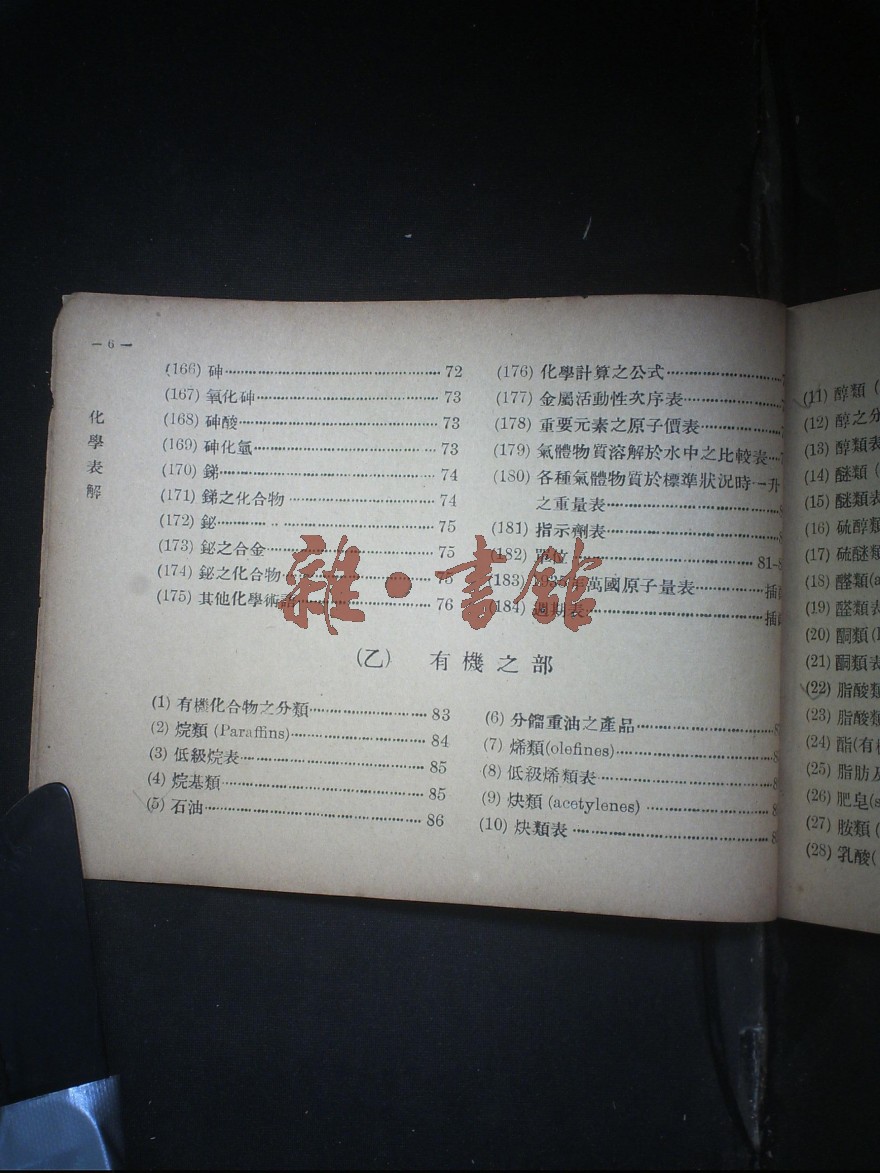 — 6 —
化學表解
(166) 砷 72
(167) 氧化砷 73
(168) 砷酸 73
(169) 砷化氫 73
(170) 銻 74
(171) 銻之化合物 74
(172) 鉍 75
(173) 鉍之合金 75
(174) 鉍之化合物 75
(175) 其他化學術語 76
(176) 化學計算之公式
(177) 金屬活動性次序表
(178) 重要元素之原子價表
(179) 氣體物質溶解於水中之比較表
(180) 各種氣體物質於標準狀況時一升
之重量表
(181) 指示劑表
(182) 單位 81-8
(183) 1935年萬國原子量表 插
(184) 週期表 插
雜·書館
(乙) 有機之部
(1) 有機化合物之分類 83
(2) 烷類 (Paraffins) 84
(3) 低級烷表 85
(4) 烷基類 85
(5) 石油 86
(6) 分餾重油之產品
(7) 烯類(olefines)
(8) 低級烯類表
(9) 炔類 (acetylenes)
(10) 炔類表
(11) 醇類 (
(12) 醇之分
(13) 醇類表
(14) 醚類 (
(15) 醚類表
(16) 硫醇類
(17) 硫醚類
(18) 醛類(a
(19) 醛類表
(20) 酮類(
(21) 酮類表
(22) 脂酸類
(23) 脂酸類
(24) 酯(有機
(25) 脂肪及
(26) 肥皂(s
(27) 胺類 (
(28) 乳酸(